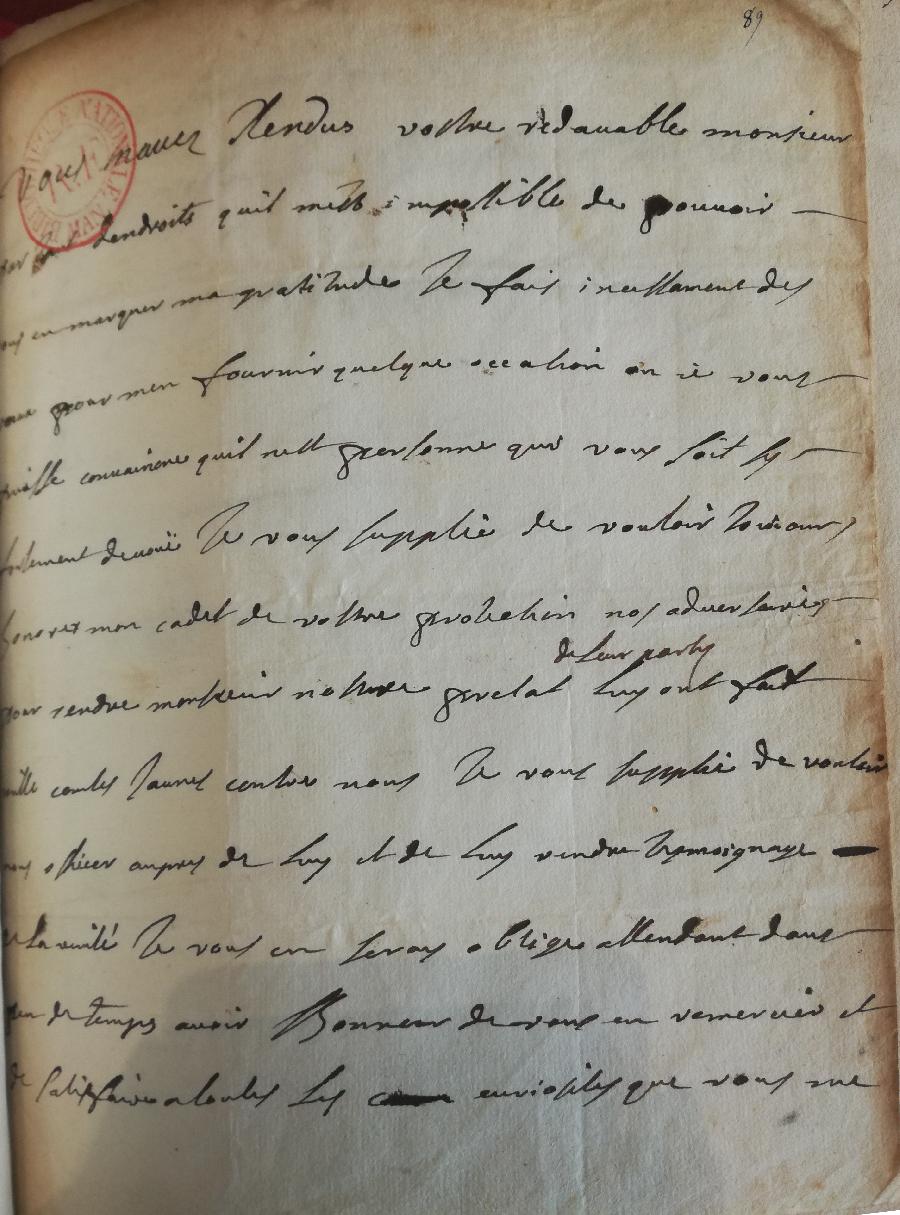 89
Vous maues Rendus vostre redauable monsieur
par dendroits quil mest impossible de pouuoir
vous en marquer ma gratitude Je fais incessament des
voeux pour men fournir quelque occation ou ie vous
puisse conuaincre quil nest personne qui vous soit sy
fortement deuoüé Je vous supplie de vouloir toujours
honorer mon cadet de vostre protection nos aduersaires
de leur party
pour rendre monsieur nostre prelat luy ont fait
mille contes jaunes contre nous Je vous supplie de vouloir
nous officer aupres de luy et de luy rendre tesmoignage
de la verité Je vous en seray oblige attendant dans
peu de temps auoir lhonneur de vous en remercier et
de satisfaire a toutes les curiosites que vous me